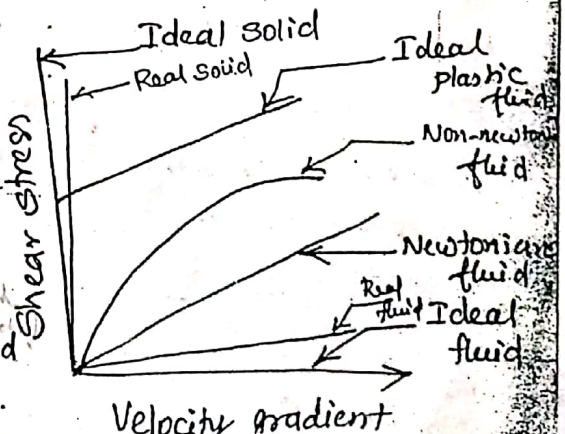 Ideal Solid
Real Solid
Ideal
plastic
fluid
Non-newton
fluid
Newtonian
fluid
Real
fluid
Ideal
fluid
Shear Stress
d
Velocity gradient